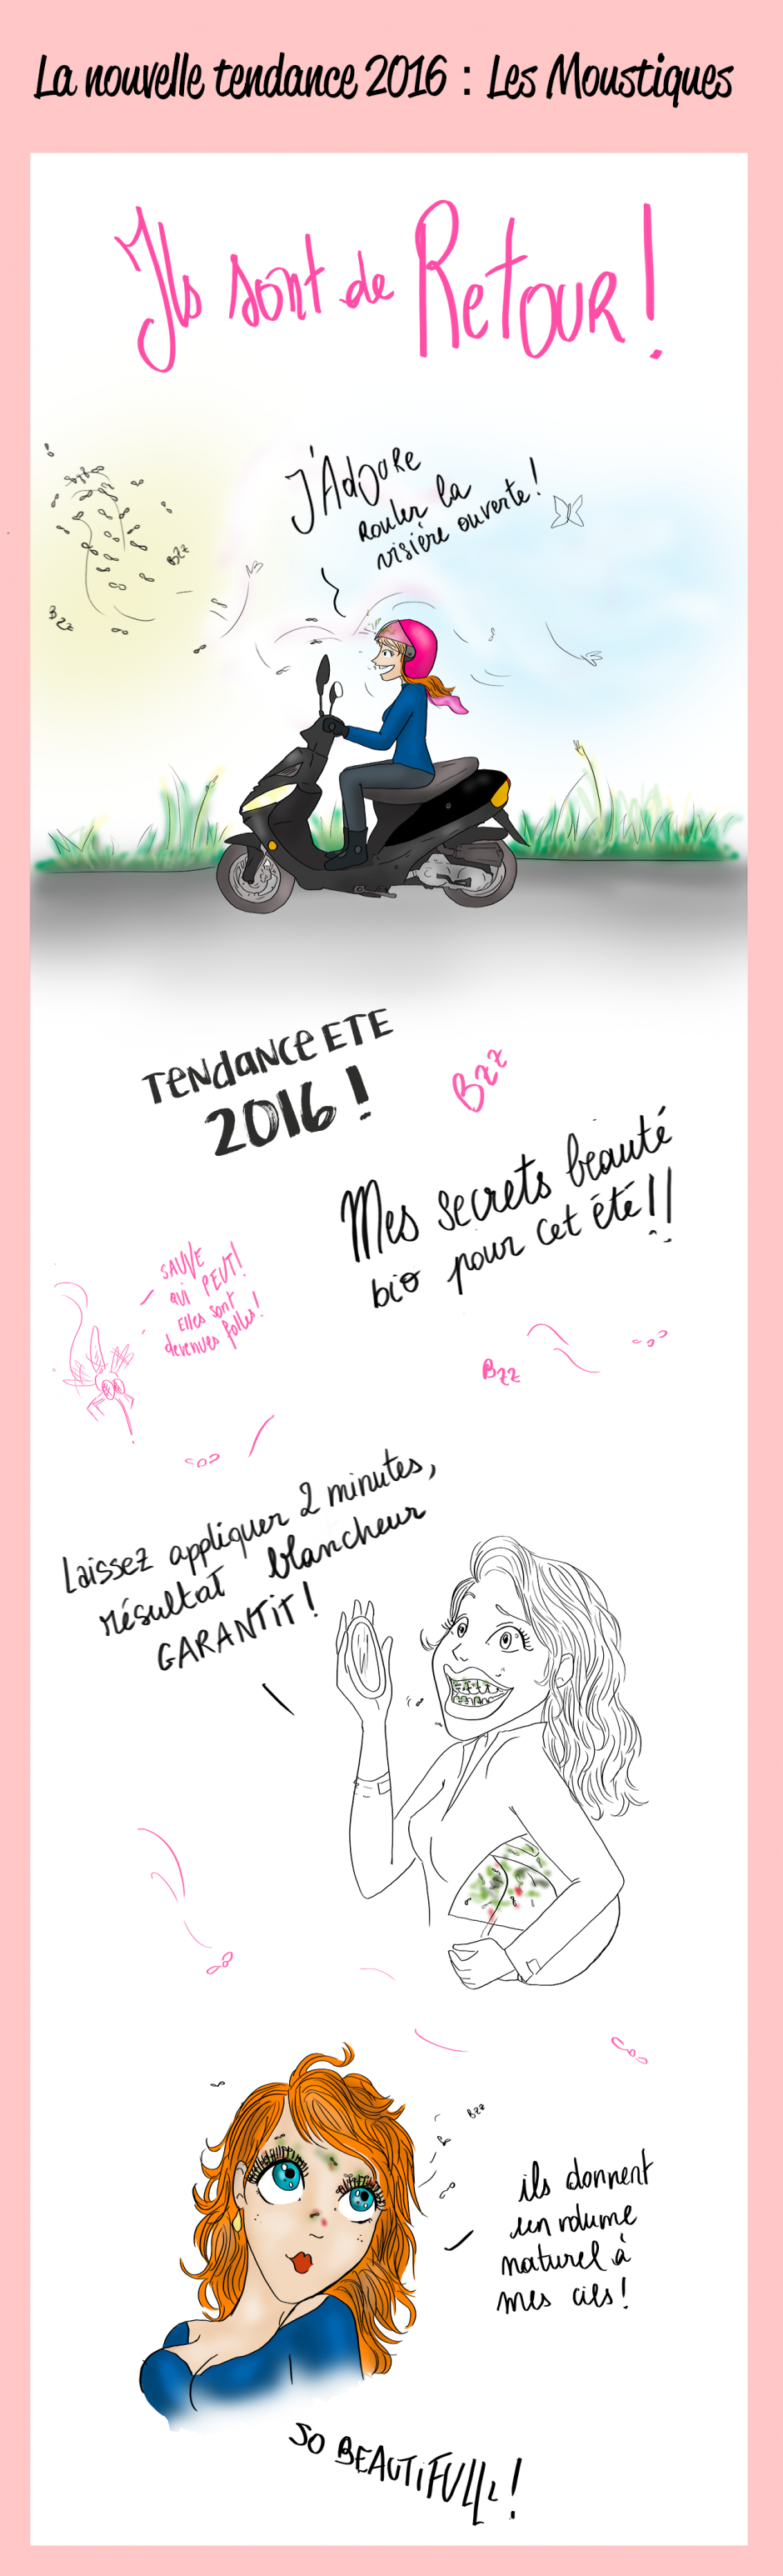 La nouvelle tendance 2016 : Les Moustiques
Ils sont de Retour !
J'Adoore
Rouler la
visière ouverte !
Bzz
Bzz
TENdaNce ETE
2016 !
Bzz
Mes secrets beauté
bio pour cet été !!
SAUVE
QUI PEUT!
Elles sont
devenues folles !
Bzz
Laissez appliquer 2 minutes,
résultat blancheur
GARANTIT !
Bzz
ils donnent
un volume
naturel à
mes cils !
SO BEAUTIFULLL !